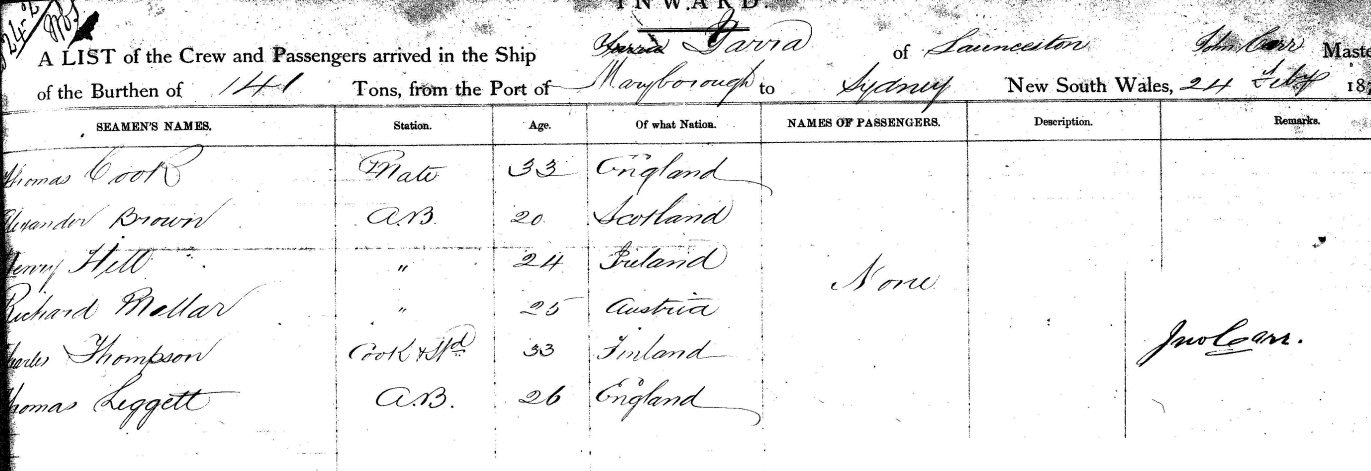 INWARD.
A LIST of the Crew and Passengers arrived in the Ship Yarra of Launceston John Carr Maste
of the Burthen of 141 Tons, from the Port of Maryborough to Sydney New South Wales, 24 Feby 18
SEAMEN'S NAMES. Station. Age. Of what Nation. NAMES OF PASSENGERS. Description. Remarks.
Thomas Cook Mate 33 England
Alexander Brown A.B. 20 Scotland
Henry Hill " 24 Ireland
None
Richard Mellar " 25 Austria
Charles Thompson Cook & Std 33 Finland
Jno Carr.
Thomas Leggett A.B. 26 England